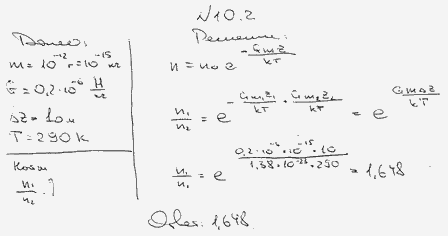 №10.2
Дано:
m = 10^-12 г = 10^-15 кг
G = 0,2·10^-6 Н/кг
ΔZ = 10 м
T = 290 К
Найти
n₁/n₂ - ?
Решение:
n = n₀ e^(-GmZ/kT)
n₁/n₂ = e^(-Gm₁Z₁/kT + Gm₂Z₂/kT) = e^(GmΔZ/kT)
n₁/n₁ = e^(0,2·10^-6·10^-15·10/1,38·10^-23·290) = 1,648
Ответ: 1,648.